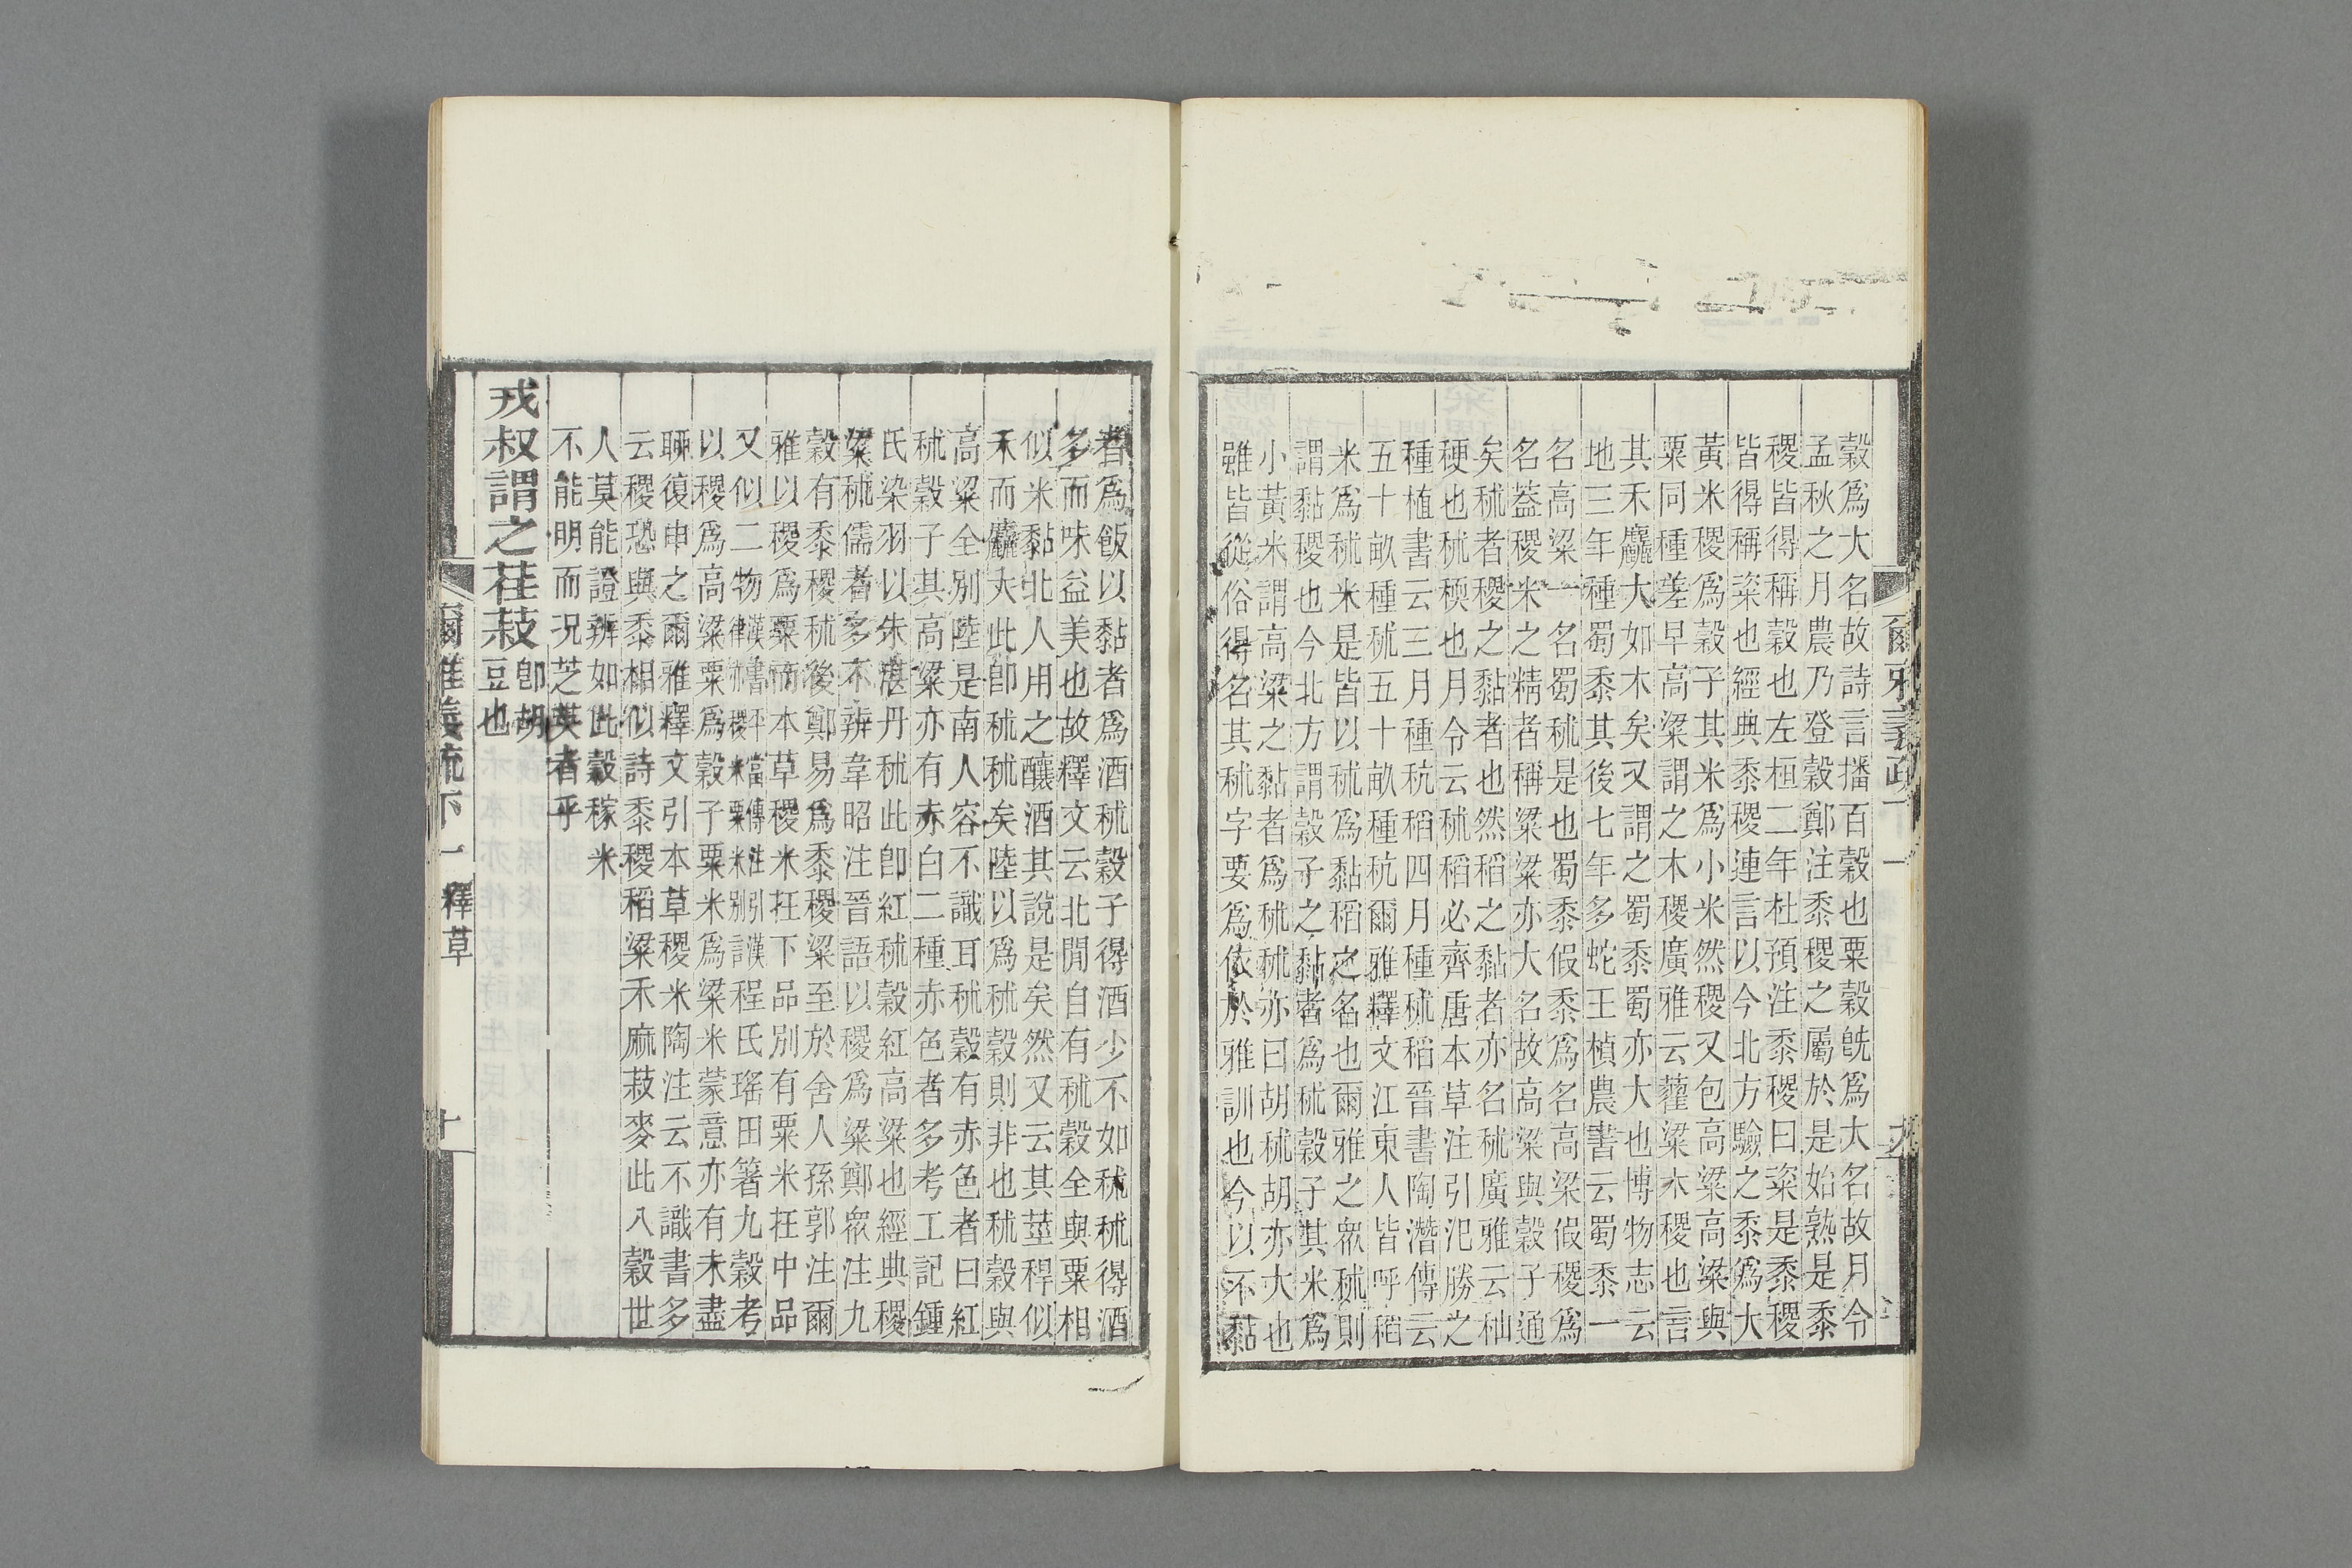 爾雅義疏下一
穀爲大名故詩言播百穀也粟穀旣爲大名故月令
孟秋之月農乃登穀鄭注黍稷之屬於是始熟是黍
稷皆得稱穀也左桓二年杜預注黍稷曰粢是黍稷
皆得稱粢也經典黍稷連言以今北方驗之黍爲大
黃米稷爲穀子其米爲小米然稷又包高粱高粱與
粟同種差早高粱謂之木稷廣雅云藋粱木稷也言
其禾麤大如木矣又謂之蜀黍蜀亦大也博物志云
地三年種蜀黍其後七年多蛇王楨農書云蜀黍一
名高粱一名蜀秫是也蜀黍假黍爲名高粱假稷爲
名葢稷米之精者稱粱粱亦大名故高粱與穀子通
矣秫者稷之黏者也然稻之黏者亦名秫廣雅云秈
稉也秫稬也月令云秫稻必齊唐本草注引氾勝之
種植書云三月種秔稻四月種秫稻晉書陶潛傳云
五十畝種秫五十畝種秔爾雅釋文江東人皆呼稻
米爲秫米是皆以秫爲黏稻之名也爾雅之衆秫則
謂黏稷也今北方謂穀子之黏者爲秫穀子其米爲
小黃米謂高粱之黏者爲秫秫亦曰胡秫胡亦大也
雖皆從俗得名其秫字要爲依於雅訓也今以不黏
者爲飯以黏者爲酒秫穀子得酒少不如秫秫得酒
多而味益美也故釋文云北閒自有秫穀全與粟相
似米黏北人用之釀酒其說是矣然又云其莖稈似
禾而麤大此卽秫秫矣陸以爲秫穀則非也秫穀與
高粱全別陸是南人容不識耳秫穀有赤色者曰紅
秫穀子其高粱亦有赤白二種赤色者多考工記鍾
氏染羽以朱湛丹秫此卽紅秫穀紅高粱也經典稷
粱秫儒者多不辨韋昭注晉語以稷爲粱鄭衆注九
穀有黍稷秫後鄭易爲黍稷粱至於舍人孫郭注爾
雅以稷爲粟而本草稷米在下品別有粟米在中品
又似二物漢書平當傳注引漢律稻米粟米別程氏瑤田著九穀考
以稷爲高粱粟爲穀子粟米爲粱米蒙意亦有未盡
聊復申之爾雅釋文引本草稷米陶注云不識書多
云稷恐與黍相似詩黍稷稻粱禾麻菽麥此八穀世
人莫能證辨如此穀稼米
不能明而况芝英者乎
戎叔謂之荏菽卽胡豆也
爾雅義疏下一 釋草 十